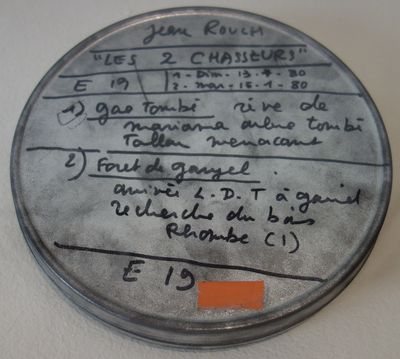 Jean ROUCH
"LES 2 CHASSEURS"
E 19 1 - Dim - 13 - 1 - 80
2 - mar - 15 - 1 - 80
1) gao Tombé rive de
mariama arbre tombé
Tallou menaçant
2) Foret de ganyel.
arrivée L.D.T à ganiel
recherche du bois
Rhombe (1)
E 19